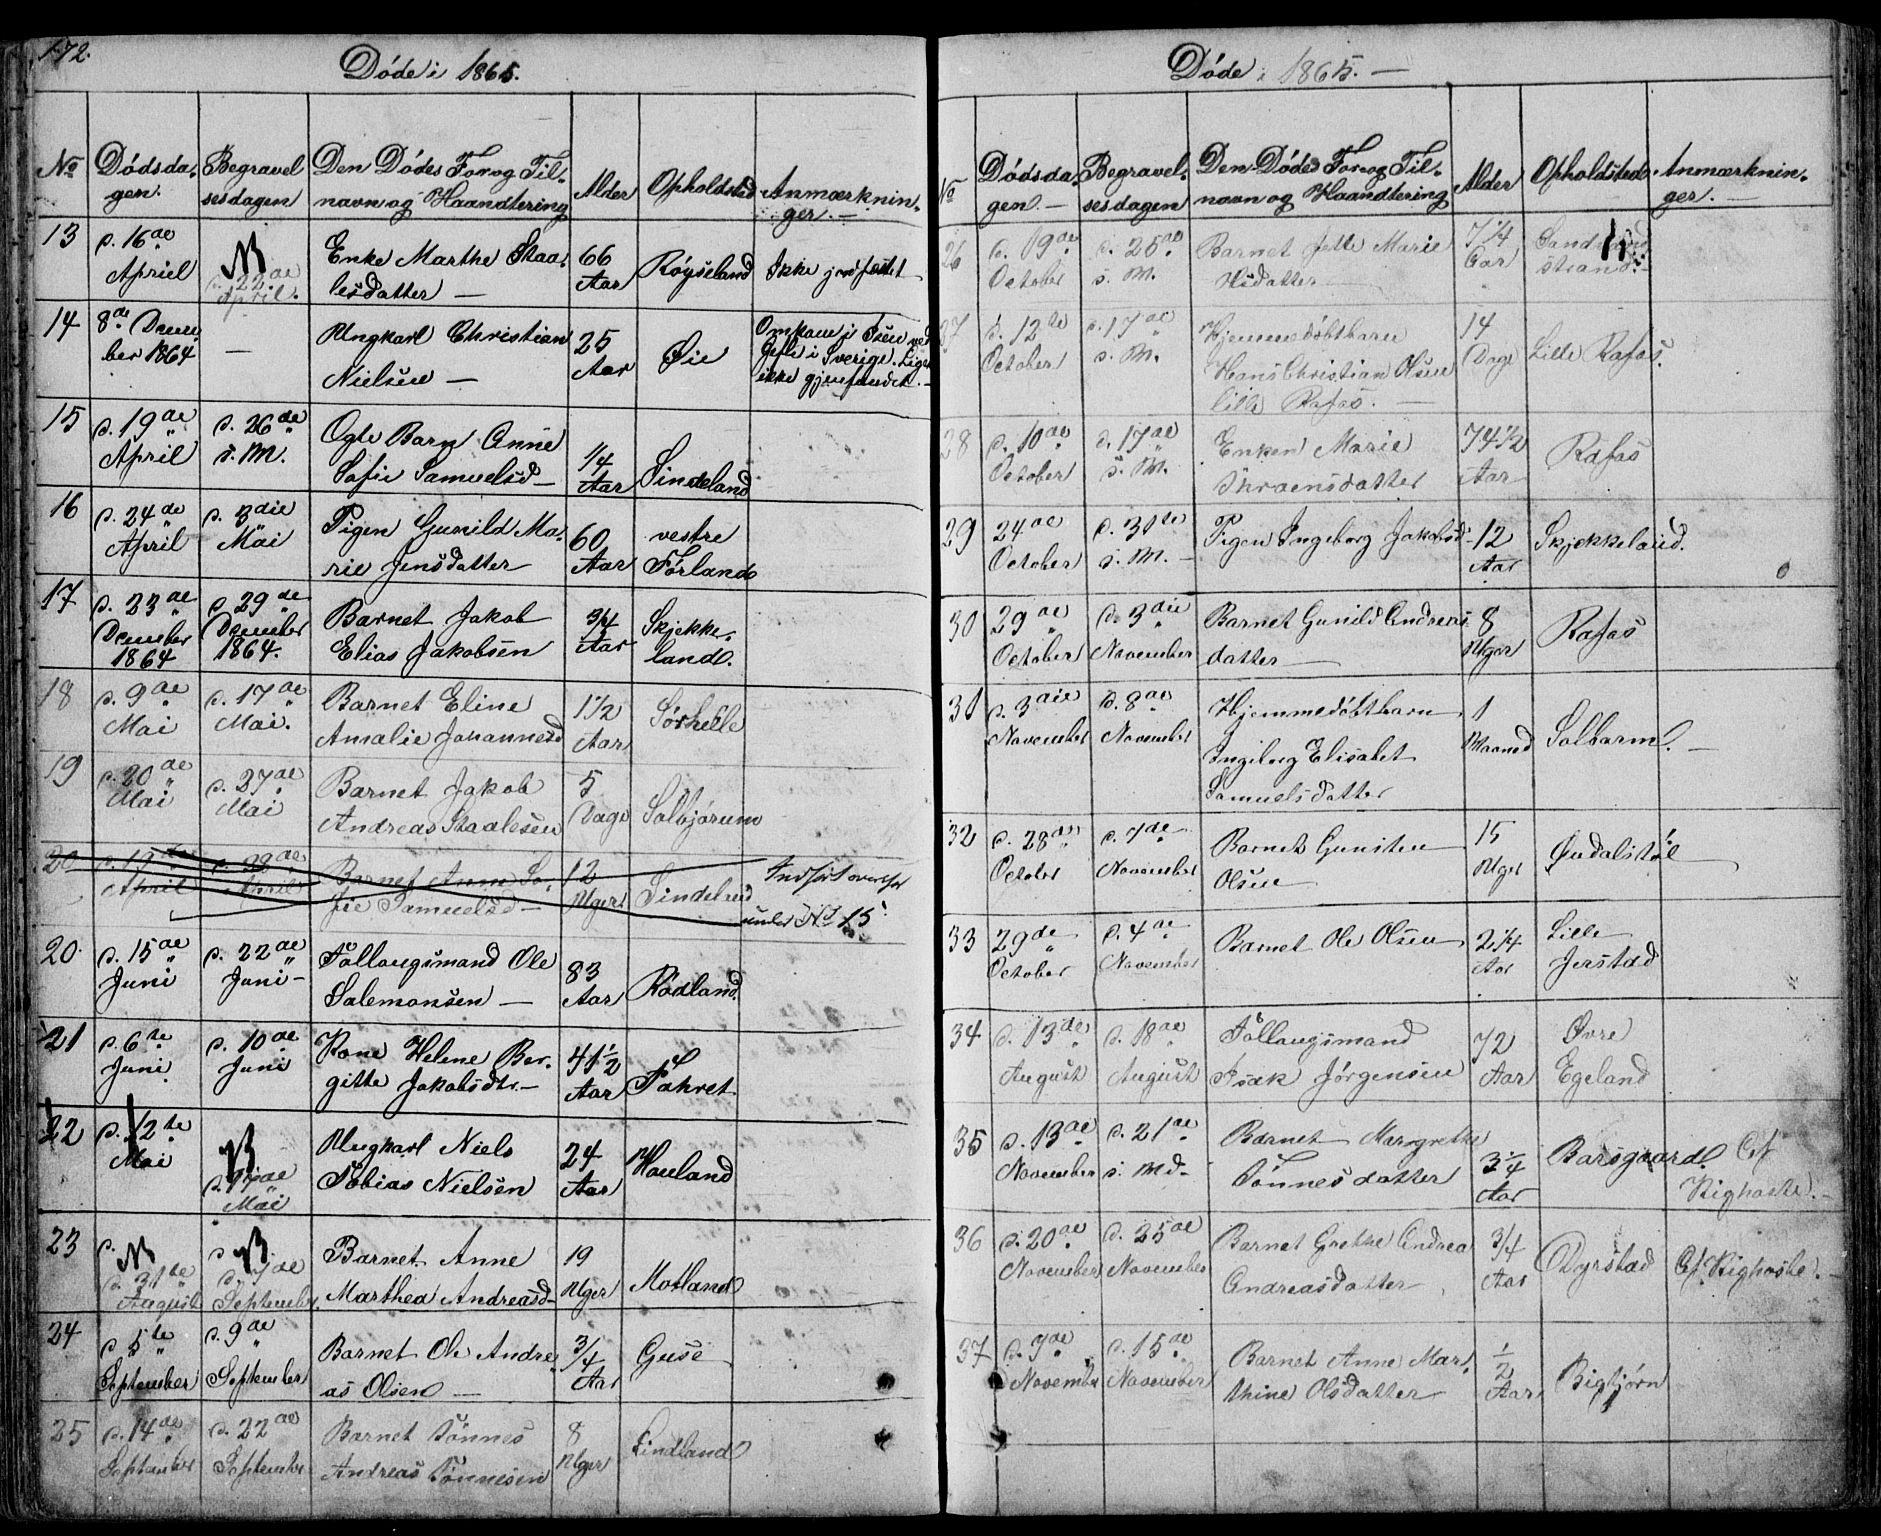 172.
Døde i 1865.
No
Dødsda-
gen.
Begravel
sesdagen
Den Dødes For og Til-
navn og Haandtering
Alder
Opholdsted
Anmærknin-
ger. —
13
d. 16de
Apriel
NB
d. 22de
April.
Enke Marthe Staa-
lesdatter —
66
Aar
Røyseland
Ikke jordfæstet
14
8de Decem
ber 1864
—
Ungkarl Christian
Nielsen —
25
Aar
Øie
Omkom i Isen ved
Gefle i Sverige. Liget
ikke gjenfundet. —
15
d. 19de
April
d. 26de
s. M.
Ogte Barn Anne
Sofie Samuelsd —
1/4
Aar
Sindeland
16
d. 24de
April
d. 3die
Mai
Pigen Gunild Ma-
rie Jensdatter
60
Aar
vestre
Førland
17
d. 23de
December
1864
d. 29de
December
1864.
Barnet Jakob
Elias Jakobsen
3/4
Aar
Skjekke-
land.
18
d. 9de
Mai
d. 17de
Mai.
Barnet Eline
Amalie Johannesd
1 1/2
Aar
Sørhelle
19
d. 20de
Mai
d. 27de
Mai
Barnet Jakob
Andreas Staalesen
5
Dage
Solbjørum
20
d. 19de
April
April
Barnet Anne So-
fie Samuelsd —
12
Uger
Sindeland
Indført ovenfor
under No 15.
20.
d. 15de
Juni
d. 22de
Juni —
Follaugsmand Ole
Salemonsen —
83
Aar
Rødland.
21
d. 6te
Juni
d. 10de
Juni
Kone Helene Ber-
gitte Jakobsdtr. —
41 1/2
Aar
22
d. 12te
Mai
NB
d. 17de
Mai
Ungkarl Niels
Tobias Nielsen
24
Aar
Houland
23
d.
NB
d. 31te
August
d
NB
d. 7de
September
Barnet Anne
Marthea Andreasd —
19
Uger
Motland
24
d. 5te
September
d. 9de
September
Barnet Ole Andre
as Olsen —
3/4
Aar
Guse
25
d. 14de
September
d. 22de
September
Barnet Tønnes
Andreas Tønnesen
8
Uger
Lindland
Døde i 1865. —
No
Dødsda-
gen. —
Begravel-
sesdagen
Den Dødes For og Til-
navn og Haandtering
Alder
Opholdsted
Anmærknin-
ger. —
26
d. 19de
October
d. 25de
s. M.
Barnet Jette Marie
7 1/4
Aar
strand.
27
d. 12te
October
d. 17de
s. M.
Hjemmedøbtbarn
Hans Christian Olsen
lille Rafas. —
14
Dage
Lille Rafas.
28
d. 10de
October
d. 17de
s. M.
Enken Marie
Thronensdatter
74 1/2
Aar
Rafas
29
24de
October
d. 31te
s. M. —
Pigen Ingeborg Jakobsd
12
Aar
Skjekkeland.
30
29de
October
d. 3die
November
Barnet Gunild Andreas
datter —
8
Uger
Rafas
31
d. 3die
November
d. 8de
November
Hjemmedøbtbarn
Ingeborg Elisabet
Samuelsdatter
1
Maaned
Solbarm. —
32
d. 28de
October
d. 7de
November
Barnet Gunsten
Olsen
15
Uger
Øndalstøl
33
29de
October
d. 4de
November
Barnet Ole Olsen
2 1/4
Aar
Lille
Jerstad
34
d. 13de
August
d. 18de
August
Follaugsmand
Isak Jørgensen
72
Aar
Øvre
Egeland
35
d. 13de
November
d. 21de
s. Md.
Barnet Margrethe
Tønnesdatter
3 1/4
Aar
Barsgaard.
Af
Kighoste. —
36
d. 20de
November
d. 25de
November
Barnet Grethe Andrea
Andreasdatter
3/4
Aar
Dyrstad
Af Kighoste. —
37
d. 7de
November
d. 15de
November
Barnet Anne Mar-
thine Olsdatter
1/2
Aar
Bigbjørn